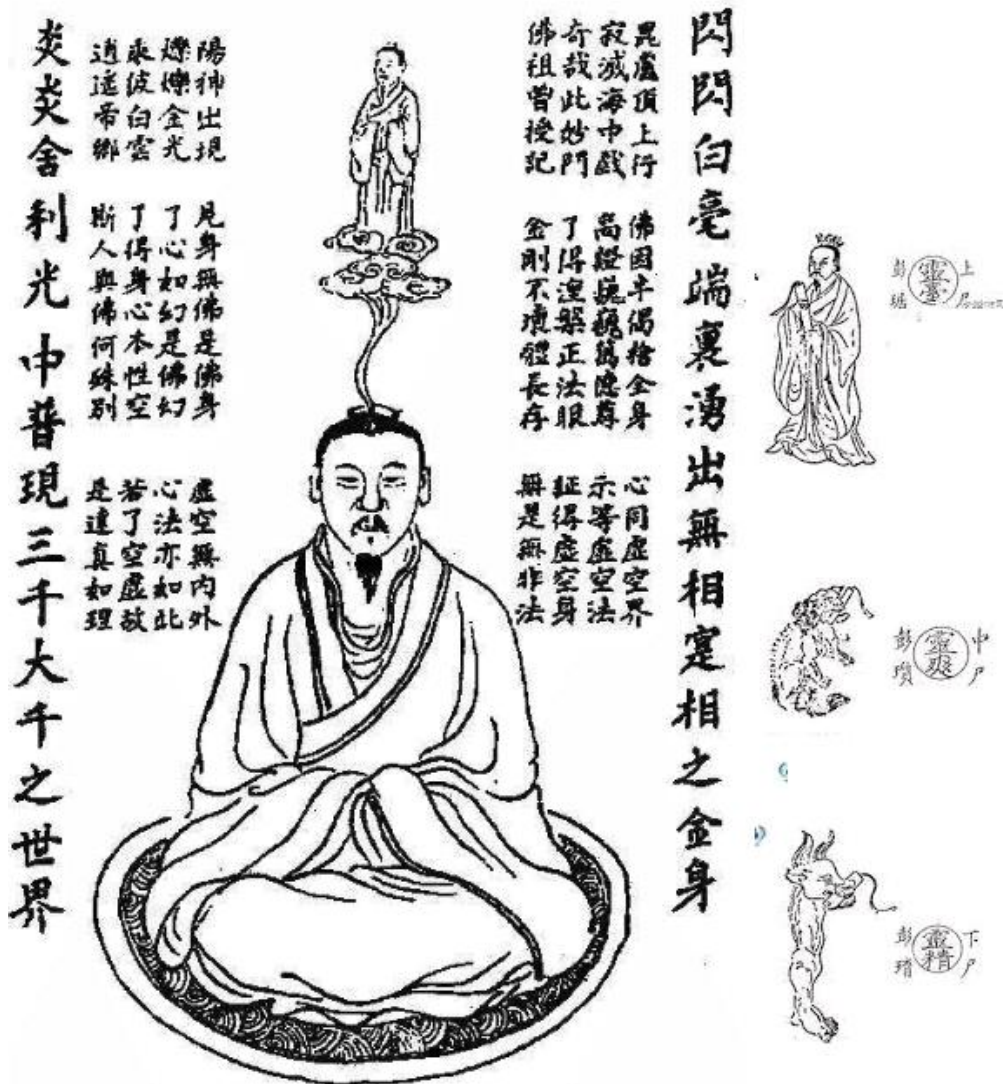 閃閃白毫端裏湧出無相寔相之金身
毘盧頂上行
寂滅海中戲
奇哉此妙門
佛祖曾授記
佛因半偈捨金身
巍巍萬德尊
了得涅槃正法眼
金剛不壞體長存
心同虛空界
示等虛空法
証得虛空身
無是無非法
陽神出現
爍爍金光
乘彼白雲
逍遥帝鄉
見身無佛是佛身
了心如幻是佛幻
了得身心本性空
斯人與佛何殊別
虛空無內外
心法亦如此
若了空虛故
是達真如理
炎炎舍利光中普現三千大千之世界
上尸
靈臺
彭琚
中尸
靈爽
彭
下尸
靈精
彭